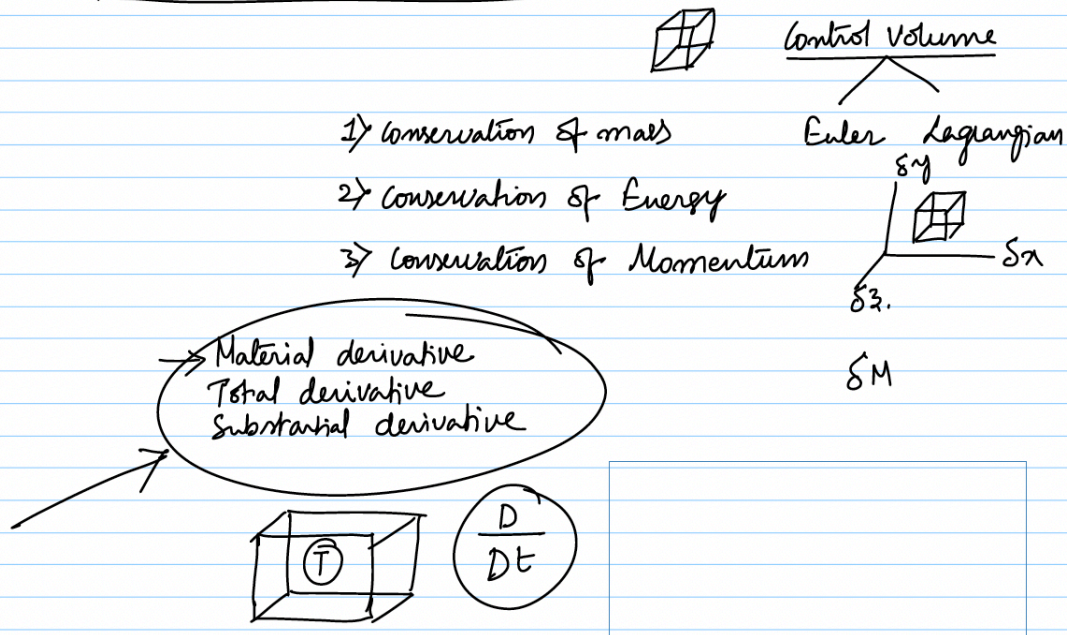 Control Volume
Euler Lagrangian
1) Conservation of mass
2) Conservation of Energy
3) Conservation of Momentum
δy
δx
δz.
δM
Material derivative
Total derivative
Substantial derivative
T
D
Dt